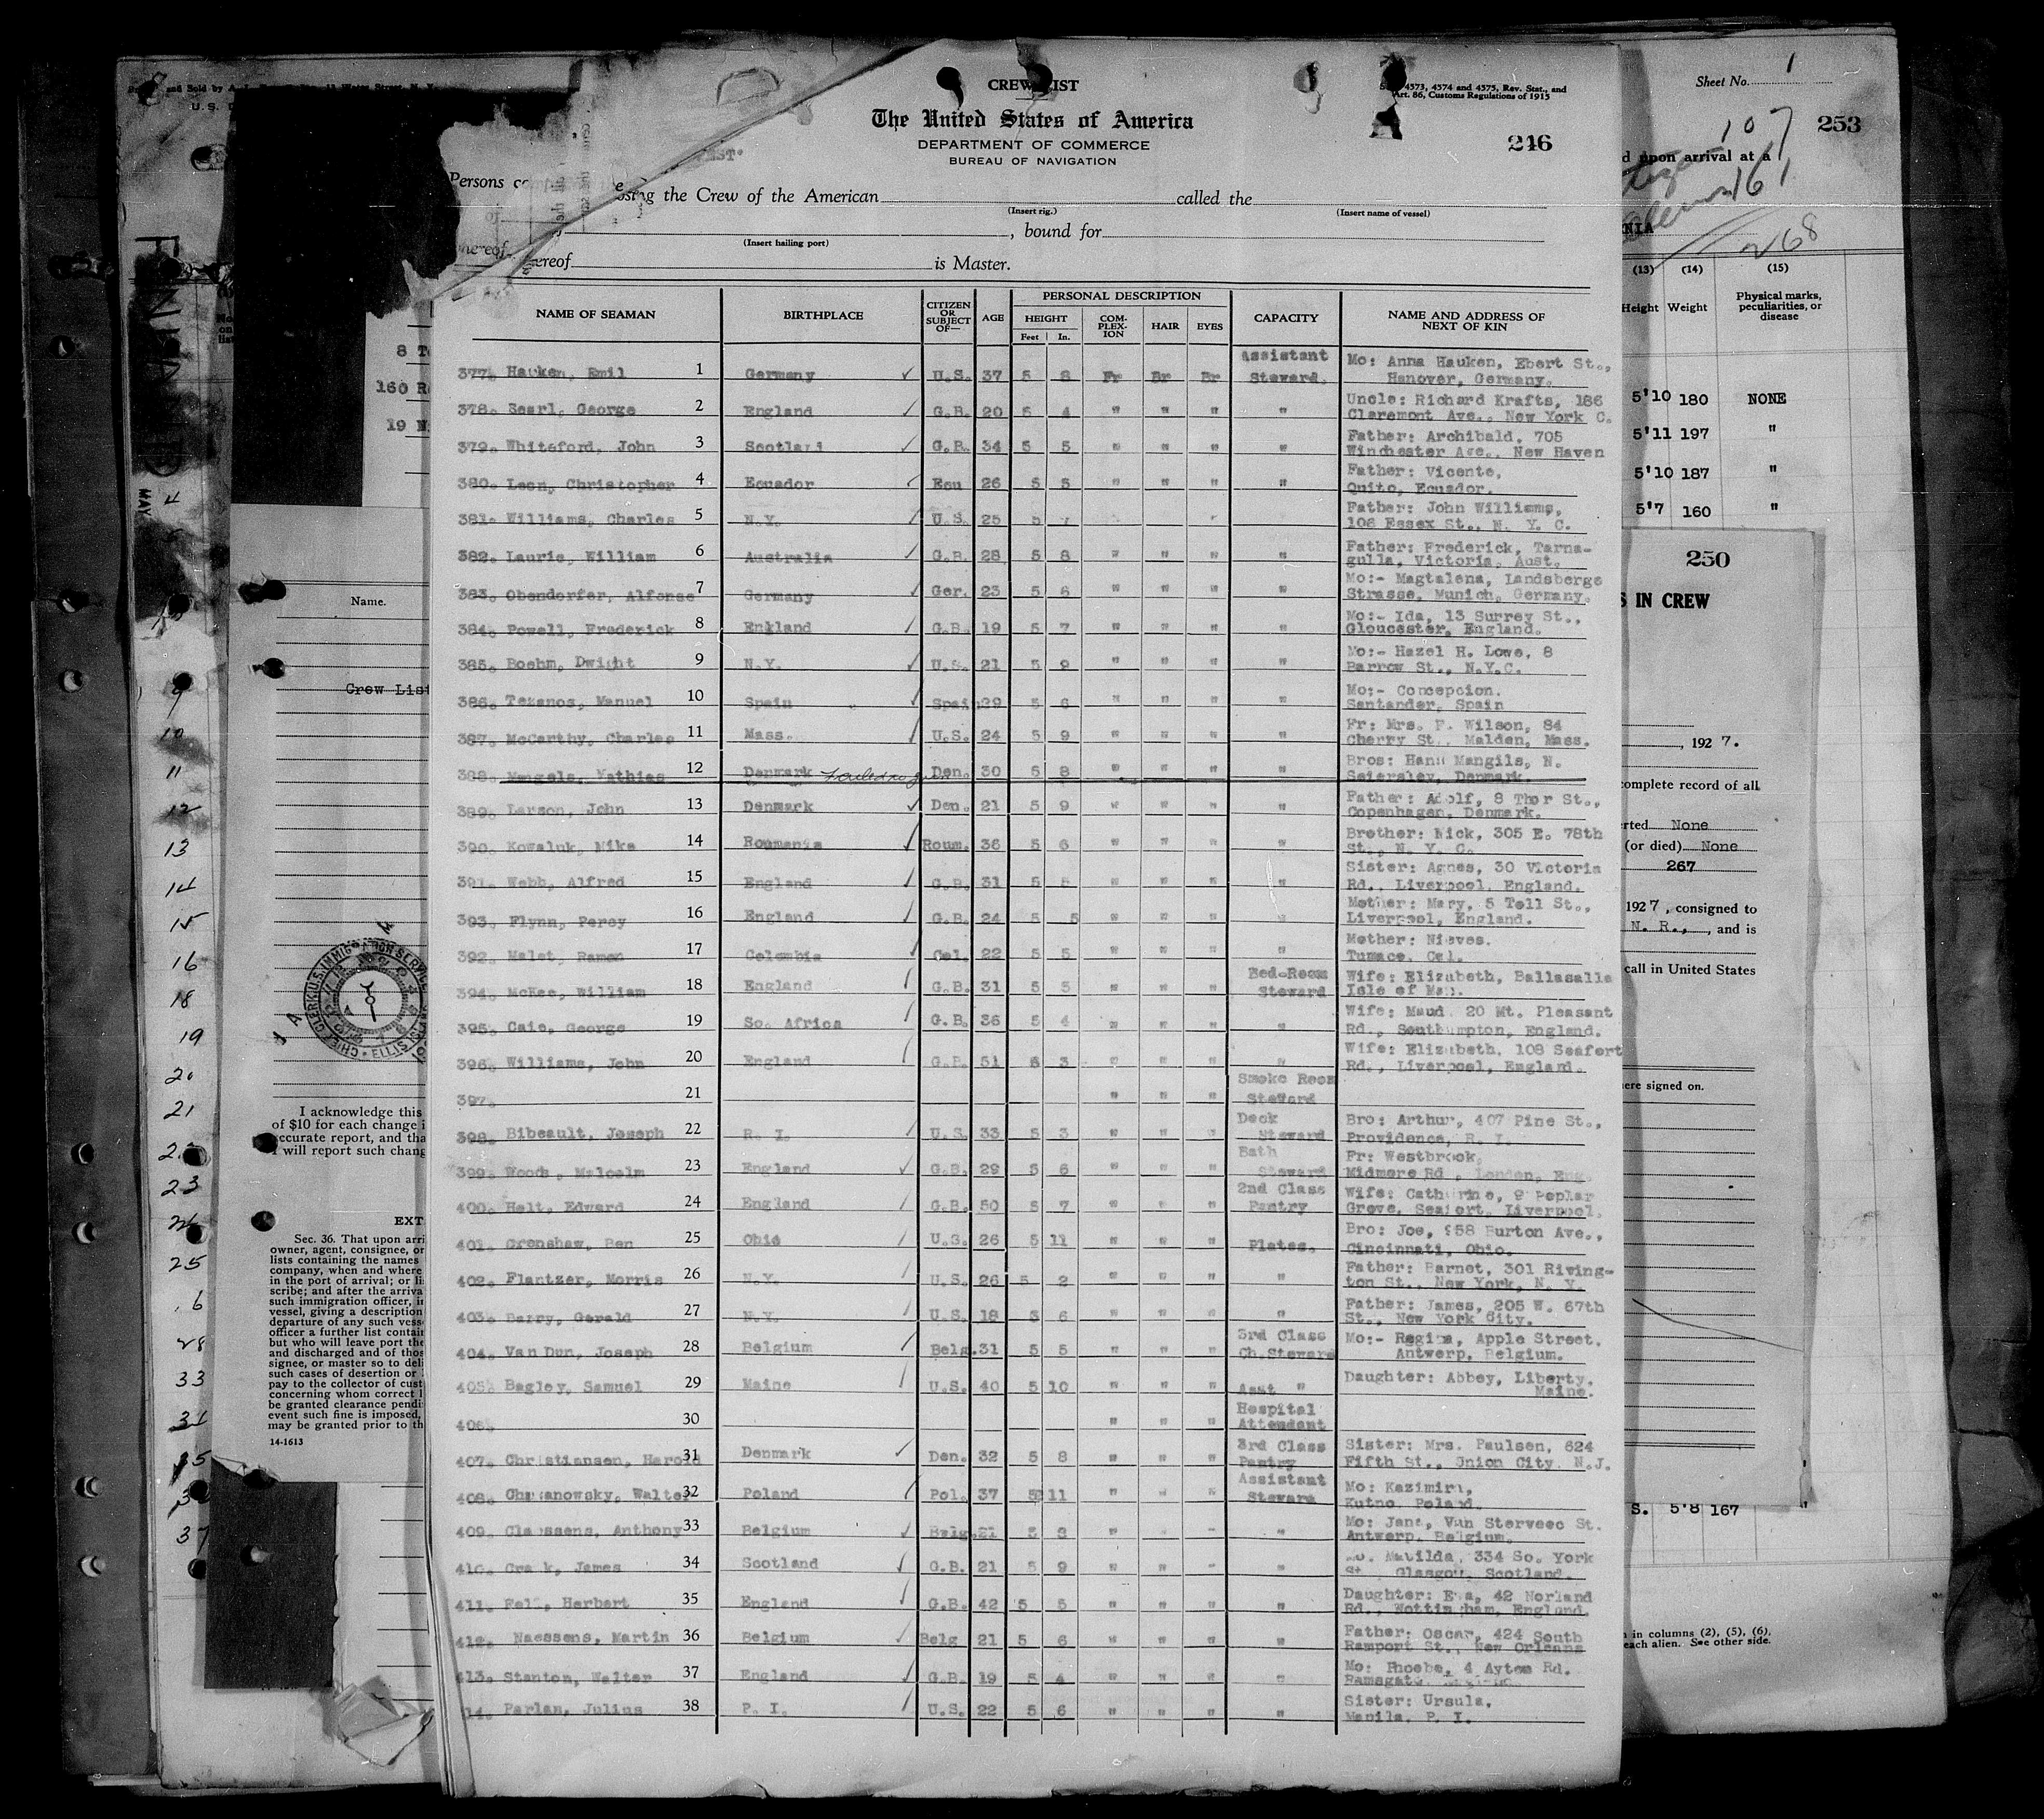 CREW LIST
4573, 4574 and 4575, Rev. Stat., and
Art. 86, Customs Regulations of 1915
The United States of America
DEPARTMENT OF COMMERCE
BUREAU OF NAVIGATION
246
Persons
sing the Crew of the American called the
(Insert rig.) (Insert name of vessel)
, bound for
(Insert hailing port)
is Master.
NAME OF SEAMAN BIRTHPLACE CITIZEN OR SUBJECT OF— AGE PERSONAL DESCRIPTION HEIGHT Feet In. COM-PLEX-ION HAIR EYES CAPACITY NAME AND ADDRESS OF NEXT OF KIN
377. Hauken, Emil 1 Germany ✓ U.S. 37 5 8 Fr Br Br Assistant Steward. Mo: Anna Hauken, Ebert St., Hanover, Germany.
378. Searl, George 2 England ✓ G.B. 20 5 4 " " " " Uncle: Richard Krafts, 186 Claremont Ave., New York C.
379. Whiteford, John 3 Scotland ✓ G.B. 34 5 5 " " " " Father: Archibald, 705 Winchester Ave., New Haven
380. Leon, Christopher 4 Ecuador ✓ Ecu 26 5 5 " " " " Father: Vicente, Quito, Ecuador.
381. Williams, Charles 5 N.Y. ✓ U.S. 25 5 7 Father: John Williams, 108 Essex St., N. Y. C.
382. Laurie, William 6 Australia ✓ G.B. 28 5 8 " " " " Father: Frederick, Tarna-gulla, Victoria, Aust.
383. Obendorfer, Alfonse 7 Germany ✓ Ger. 23 5 6 " " " " Mo:- Magtalena, Landsberge Strasse, Munich, Germany.
384. Powell, Frederick 8 England ✓ G.B. 19 5 7 " " " " Mo:- Ida, 13 Surrey St., Gloucester, England.
385. Boehm, Dwight 9 N.Y. ✓ U.S. 21 5 9 " " " " Mo:- Hazel H. Lowe, 8 Barrow St., N.Y.C.
386. Tezanos, Manuel 10 Spain ✓ Spain 29 5 6 " " " " Mo:- Concepcion. Santander, Spain
387. McCarthy, Charles 11 Mass. ✓ U.S. 24 5 9 " " " " Fr: Mrs. F. Wilson, 84 Cherry St., Malden, Mass.
388. Mangels, Mathias 12 Denmark Failed to Den. 30 5 8 " " " " Bros: Hans Mangils, N. Denmark.
389. Larson, John 13 Denmark ✓ Den. 21 5 9 " " " " Father: Adolf, 8 Thor St., Copenhagen, Denmark.
390. Kowaluk, Mike 14 Roumania ✓ Roum. 36 5 6 " " " " Brother: Nick, 305 E. 78th St., N. Y. C.
391. Webb, Alfred 15 England ✓ G.B. 31 5 5 " " " " Sister: Agnes, 30 Victoria Rd., Liverpool, England.
393. Flynn, Percy 16 England ✓ G.B. 24 5 5 " " " " Mother: Mary, 5 Tell St., Liverpool, England.
392. Malet, Ramon 17 Colombia ✓ Col. 22 5 5 " " " " Mother: Nieves. Tumaco, Col.
394. McKee, William 18 England ✓ G.B. 31 5 5 " " " Bed-Room Steward Wife: Elizabeth, Ballasalla Isle of Man.
395. Caie, George 19 So. Africa ✓ G.B. 36 5 4 " " " " Wife: Maud, 20 Mt. Pleasant Rd., Southampton, England.
396. Williams, John 20 England ✓ G.B. 51 5 3 " " " " Wife: Elizabeth, 108 Seafort Rd., Liverpool, England.
397. 21 " " " Smoke Room Steward
398. Bibeault, Joseph 22 R. I. ✓ U.S. 33 5 3 " " " Deck Steward Bro: Arthur, 407 Pine St., Providence, R. I.
399. Woods, Malcolm 23 England ✓ G.B. 29 5 6 " " " Bath Steward Fr: Westbrook, Midmore Rd., London, Eng.
400. Holt, Edward 24 England ✓ G.B. 50 5 7 " " " 2nd Class Pantry Wife: Catherine, 9 Poplar Grove, Seafort, Liverpool.
401. Crenshaw, Ben 25 Ohio ✓ U.S. 26 5 11 " " " Plates. Bro: Joe, 958 Burton Ave., Cincinnati, Ohio.
402. Flantzer, Morris 26 N.Y. ✓ U.S. 26 5 2 " " " " Father: Barnet, 301 Riving-ton St., New York, N. Y.
403. Barry, Gerald 27 N.Y. ✓ U.S. 18 5 6 " " " " Father: James, 205 W. 67th St., New York City.
404. Van Dun, Joseph 28 Belgium ✓ Belg. 31 5 5 " " " 3rd Class Ch.Steward Mo:- Regina, Apple Street. Antwerp, Belgium.
405. Bagley, Samuel 29 Maine ✓ U.S. 40 5 10 " " " Asst " Daughter: Abbey, Liberty, Maine.
406. 30 " " " Hospital Attendant
407. Christiansen, Harold 31 Denmark ✓ Den. 32 5 8 " " " 3rd Class Pantry Sister: Mrs. Paulsen, 624 Fifth St., Union City, N.J.
408. Walter 32 Poland ✓ Pol. 37 5 11 " " " Assistant Steward Mo: Kazimira, Kutno, Poland.
409. Claessens, Anthony 33 Belgium ✓ Belg. 21 " " Mo: Jane, Van Sterveec St. Antwerp, Belgium.
410. James 34 Scotland ✓ G.B. 21 5 9 " " " Matilda, 334 So. York St., Glasgow, Scotland.
411. Fell, Herbert 35 England ✓ G.B. 42 5 5 " " " " Daughter: Eva, 42 Norland Rd., Nottingham, England.
412. Naessens, Martin 36 Belgium ✓ Belg 21 5 6 " " " " Father: Oscar, 424 South Ramport St., New Orleans
413. Stanton, Walter 37 England ✓ G.B. 19 5 4 " " " " Mo: Phoebe, 4 Ayton Rd. Ramsgate,
14. Parlan, Julius 38 P. I. ✓ U.S. 22 5 6 " " " " Sister: Ursula, Manila, P. I.
Sheet No. 1
253
107
161
268
d upon arrival at a
NIA
(13) (14) (15)
Height Weight Physical marks, peculiarities, or disease
5'10 180 NONE
5'11 197 "
5'10 187 "
5'7 160 "
250
S IN CREW
, 1927.
complete record of all
rted None
(or died) None
267
1927, consigned to
N. R., , and is
call in United States
ere signed on.
S. 5'8 167
in columns (2), (5), (6).
each alien. See other side.
and Sold by
8
160
19
MAY
Name.
Crew List
9
10
11
12
13
14
15
16
18
19
20
21
23
25
28
33
37
I acknowledge this
of $10 for each change i
accurate report, and tha
will report such chang
EXT
Sec. 36. That upon arri
owner, agent, consignee, or
lists containing the names
company, when and where
in the port of arrival; or li
scribe; and after the arriva
such immigration officer, i
vessel, giving a description
departure of any such vess
officer a further list contai
but who will leave port the
and discharged and of thos
signee, or master so to deli
such cases of desertion or
pay to the collector of cust
concerning whom correct l
be granted clearance pendi
event such fine is imposed,
may be granted prior to th
14-1613